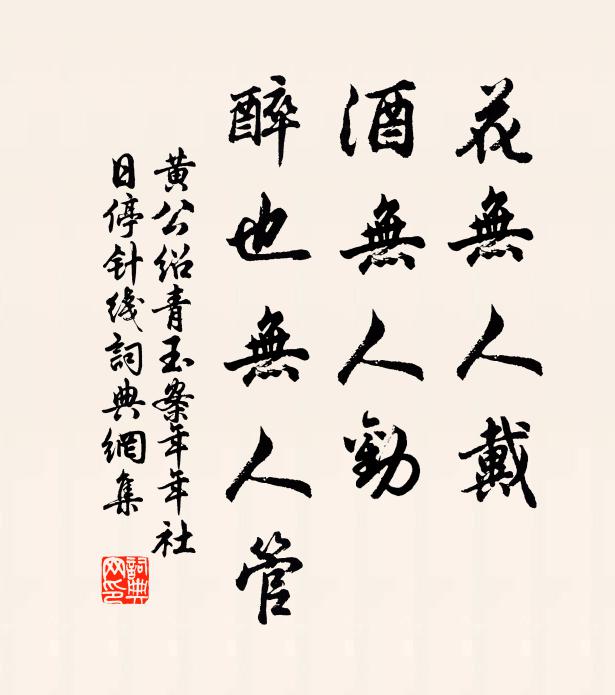 花無人戴
酒無人勸
醉也無人管
黄公绍青玉案年年社
日停针线詞典網集
詞典
网印